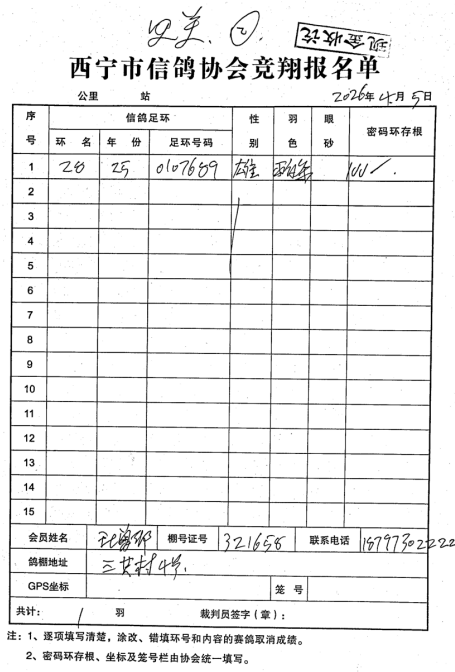 现金收讫
西宁市信鸽协会竞翔报名单
公里 站 2026年4月5日
序号 信鸽足环 性别 羽色 眼砂 密码环存根
环 名 年 份 足环号码
1 28 25 0107689 雄 100
2
3
4
5
6
7
8
9
10
11
12
13
14
15
会员姓名 棚号证号 321658 联系电话 18797302222
鸽棚地址 三其村4号
GPS坐标 笼 号
共计: 1 羽 裁判员签字(章):
注:1、逐项填写清楚,涂改、错填环号和内容的赛鸽取消成绩。
2、密码环存根、坐标及笼号栏由协会统一填写。